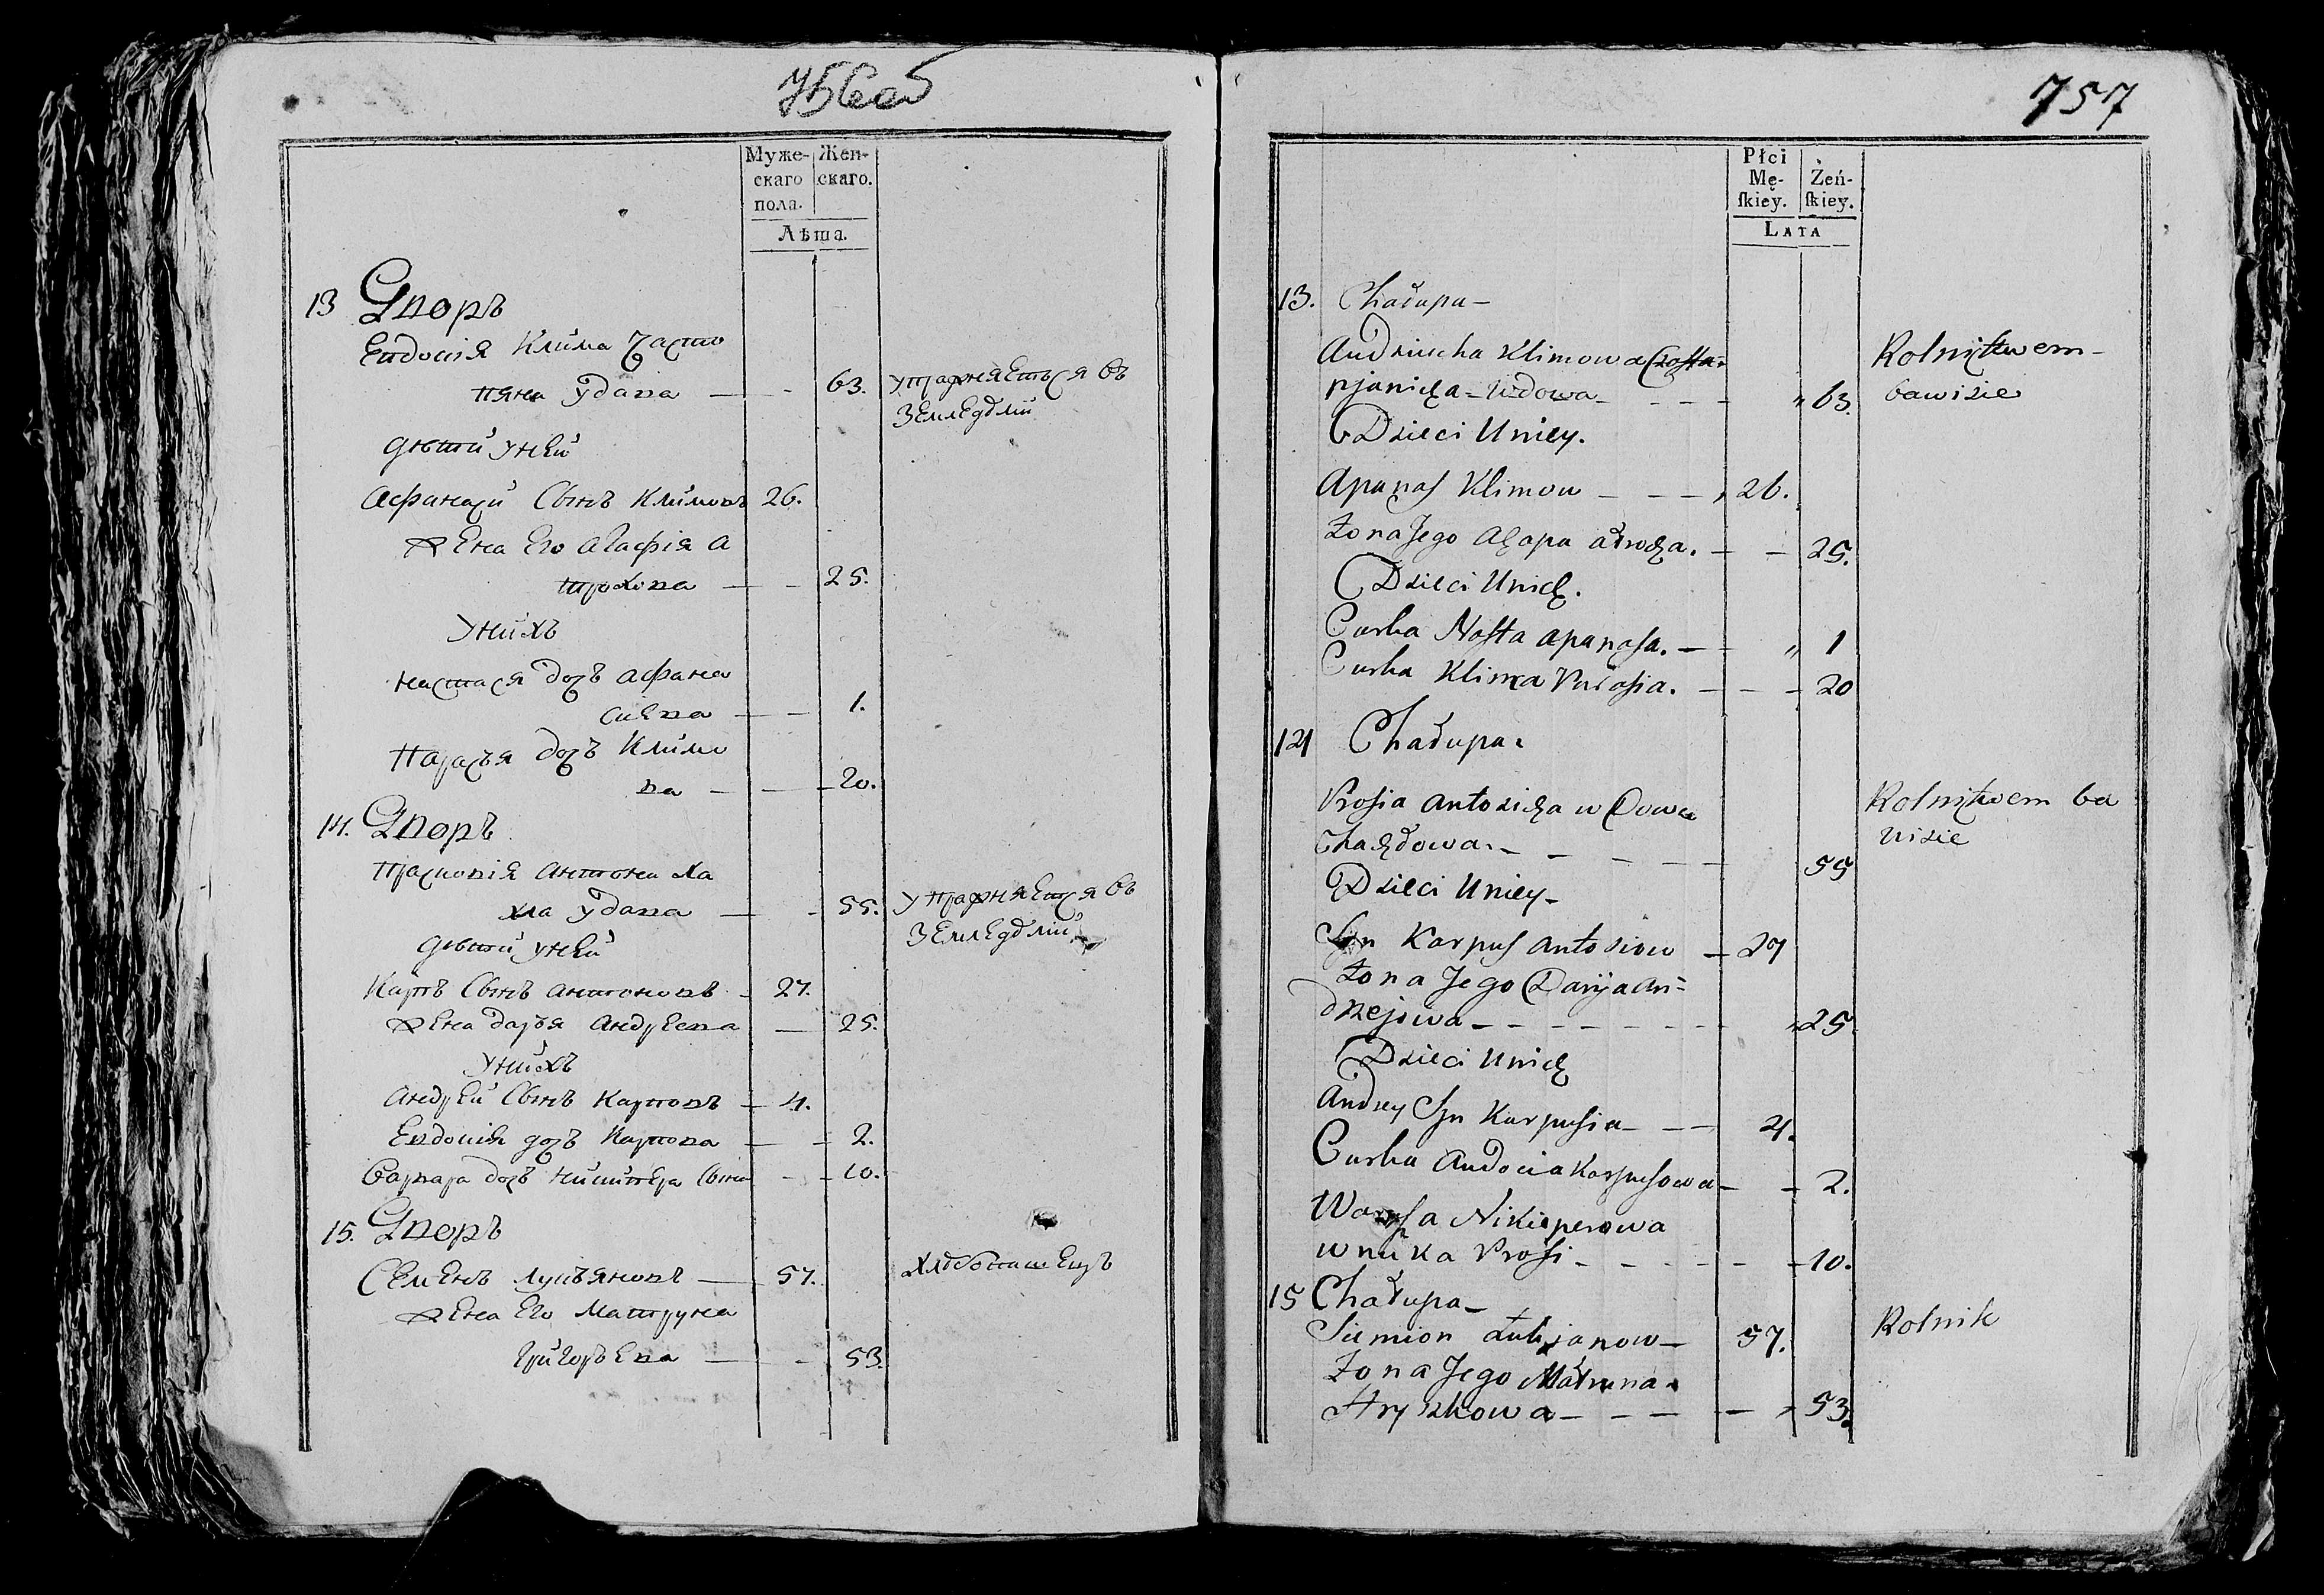 756 об
Муже-
скаго
пола.
Жен-
скаго.
Лѣта.
13 Дворъ
Евдокія Клима Часто
пяна удава — - 63. упражняеться въ
земледѣлій
дѣтй у ней
Афанасй Сынъ Климовъ 26.
жена Его Агафія А
трохова — - 25.
у нихъ
настася дочъ афана
сиева — — 1.
Парасъя дочъ Климо
ва — — 20.
14. Дворъ
Прасковія антона Ха
удава — - 55. упражняется въ
земледѣлій
дѣтй у ней
Карпъ Сынъ антоновъ - 27.
жена даръя андреева — 25.
у нихъ
андрей Сынъ Карповъ — 4.
Евдокія дочъ Карпова — - 2.
Варвара дочъ - - 10.
15. Дворъ
Семенъ лукъяновъ — 57. хлѣбопашецъ
жена Его Матруна
григоръева — - 53.
757
Płci
Mę-
ſkiey.
Żeń-
ſkiey.
LATA
13. Chałupa —
Audziucha Klimowa Czosta- Rolnictwem -
pjanicha - wdowa - - - - „ 63. bawi sie
Dzieci Uniey.
Apanas Klimow - - - , 26.
Żona Jego Achapa - - 25.
Dzieci Unich.
Curka Nasta apanasa. — - „ 1
Curka Klima Parasia. - - - 20
14 Chałupa.
Prosia antosicha wdowa Rolnictwem ba
- - - - - 55 wi sie
Dzieci Uniey -
Syn Karpus antosiow - 27
Żona Jego Daryja an=
drzejowa - - - - - - - „ 25
Dzieci Unich
Andrey Syn Karpusia - - - 4.
Curka Audocia Karpusowa - - 2.
Nikieperowa
wnuka Prosi - - - - - - 10.
15 Chałupa -
Siemion Łukjanow - 57. Rolnik
Żona Jego Matruna.
Hryszkowa - - - - - 53.